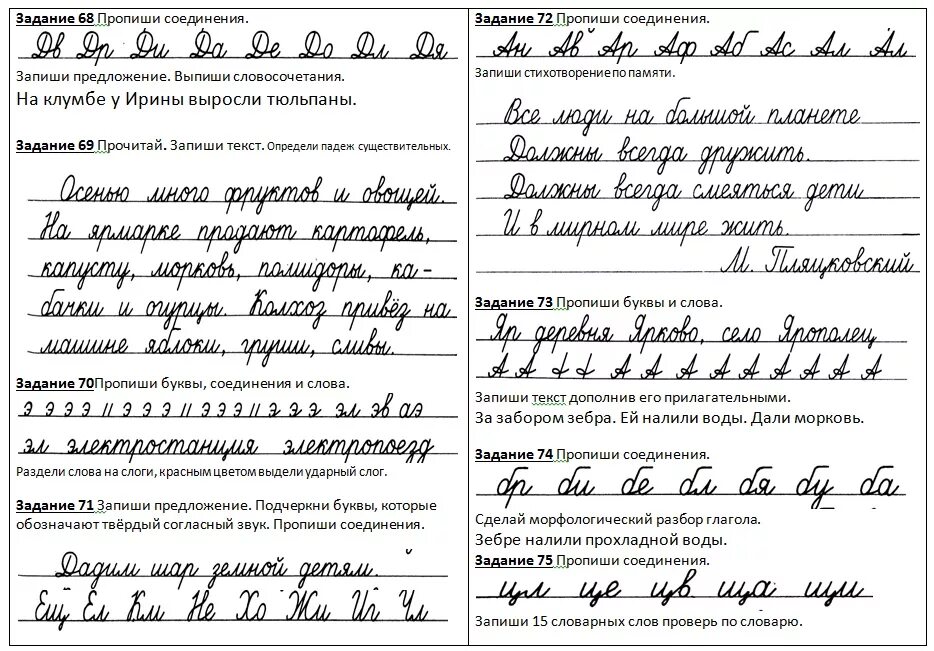 Задание 68 Пропиши соединения.
Дв Др Ди Да Де До Дл Дя
Запиши предложение. Выпиши словосочетания.
На клумбе у Ирины выросли тюльпаны.
Задание 69 Прочитай. Запиши текст. Определи падеж существительных.
Осенью много фруктов и овощей.
На ярмарке продают картофель,
капусту, морковь, помидоры, ка-
бачки и огурцы. Колхоз привёз на
машине яблоки, груши, сливы.
Задание 70Пропиши буквы, соединения и слова.
э э э э // э э э // э э э // э э э эл эв аэ
эл электростанция электропоезд
Раздели слова на слоги, красным цветом выдели ударный слог.
Задание 71 Запиши предложение. Подчеркни буквы, которые
обозначают твёрдый согласный звук. Пропиши соединения.
Дадим шар земной детям.
Ещ Ел Км Не Хо Жи Иг Чл
Задание 72 Пропиши соединения.
Ан Ав Ар Аф Аб Ас Ал Ал
Запиши стихотворение по памяти.
Все люди на большой планете
Должны всегда дружить.
Должны всегда смеяться дети
И в мирном мире жить.
М. Пляцковский
Задание 73 Пропиши буквы и слова.
Яр деревня Ярково, село Ярополец
А А А А А А А А А А А А А
Запиши текст дополнив его прилагательными.
За забором зебра. Ей налили воды. Дали морковь.
Задание 74 Пропиши соединения.
бр би бе бл бя бу ба
Сделай морфологический разбор глагола.
Зебре налили прохладной воды.
Задание 75 Пропиши соединения.
цл це цв ща щи
Запиши 15 словарных слов проверь по словарю.